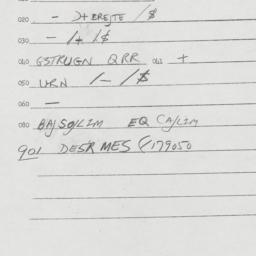 020 - )+BREJTE /$
030 - /+ /$
040 GSTRUGN QRR +
050 URN /- /$
060 -
080 BAJSO/LIM EQ CA/LIM
901 DESR MES (/179050